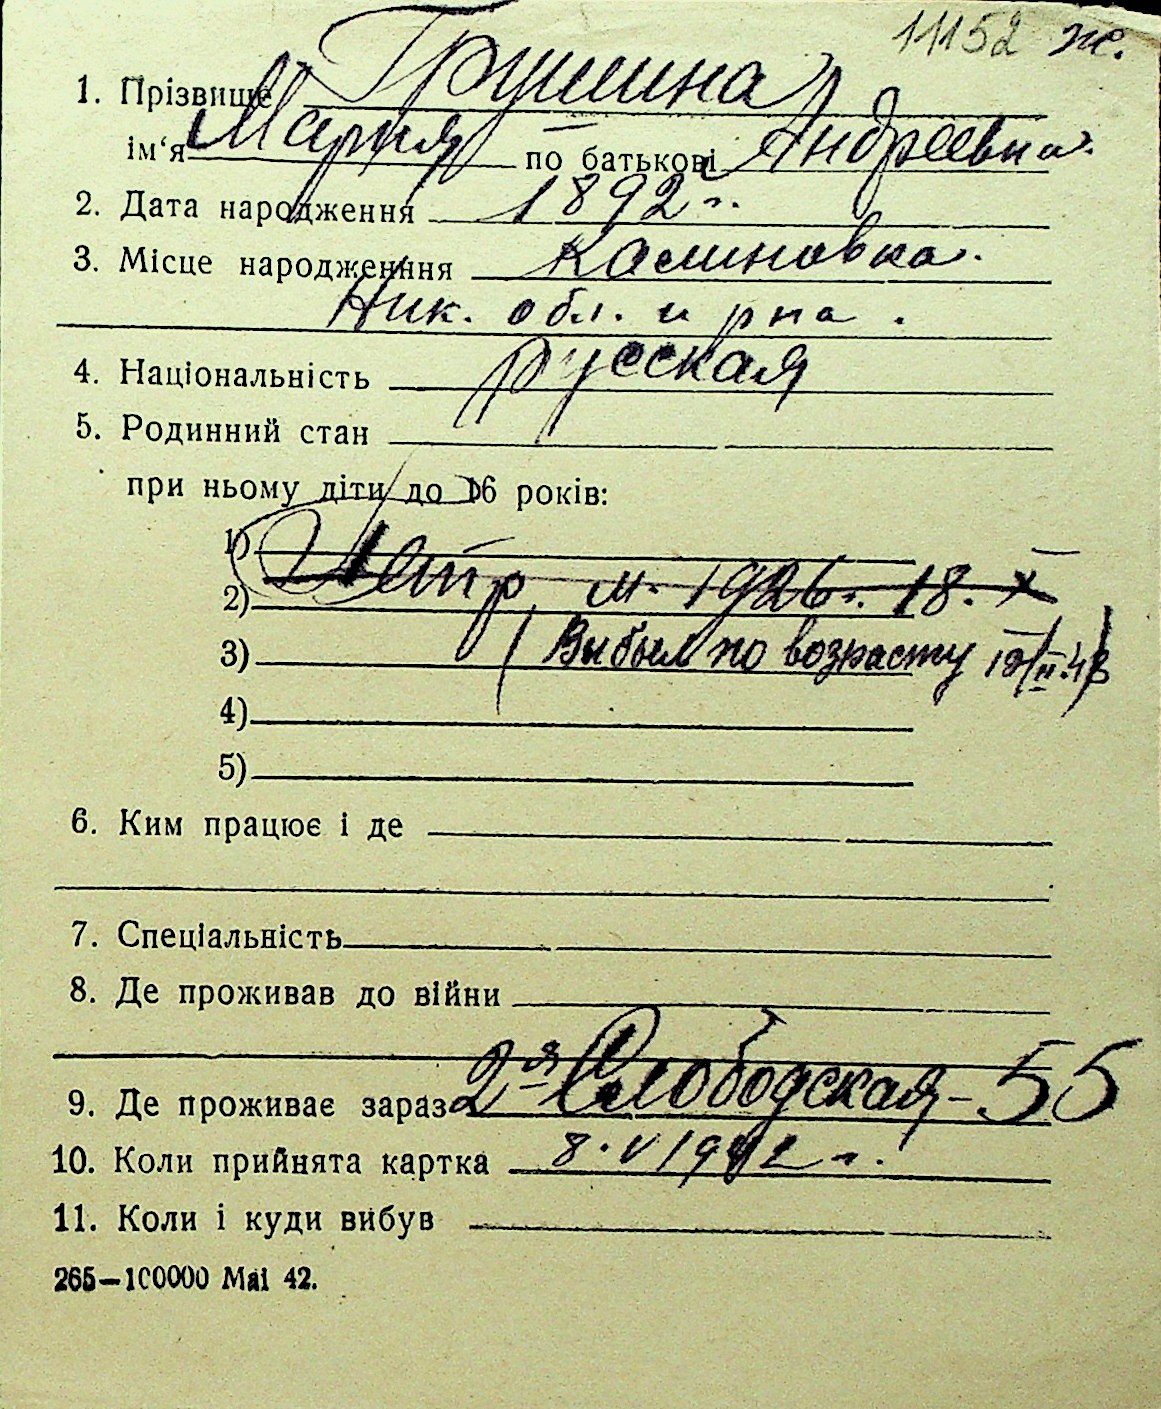 11152 ж.
1. Прізвище Грушина
ім‘я Мария по батькові Андреевна.
2. Дата народження 1892 г.
3. Місце народженння Калиновка.
Ник. обл. и рна.
4. Національність русская
5. Родинний стан
при ньому діти до 16 років:
1)
2) Петр м. 1926 г. 18. X
3) (Выбыл по возрасту
4)
5)
6. Ким працює і де
7. Спеціальність
8. Де проживав до війни
9. Де проживає зараз 2я Слободская - 55
10. Коли прийнята картка 8. V 1942 г.
11. Коли і куди вибув
265—100000 Mai 42.